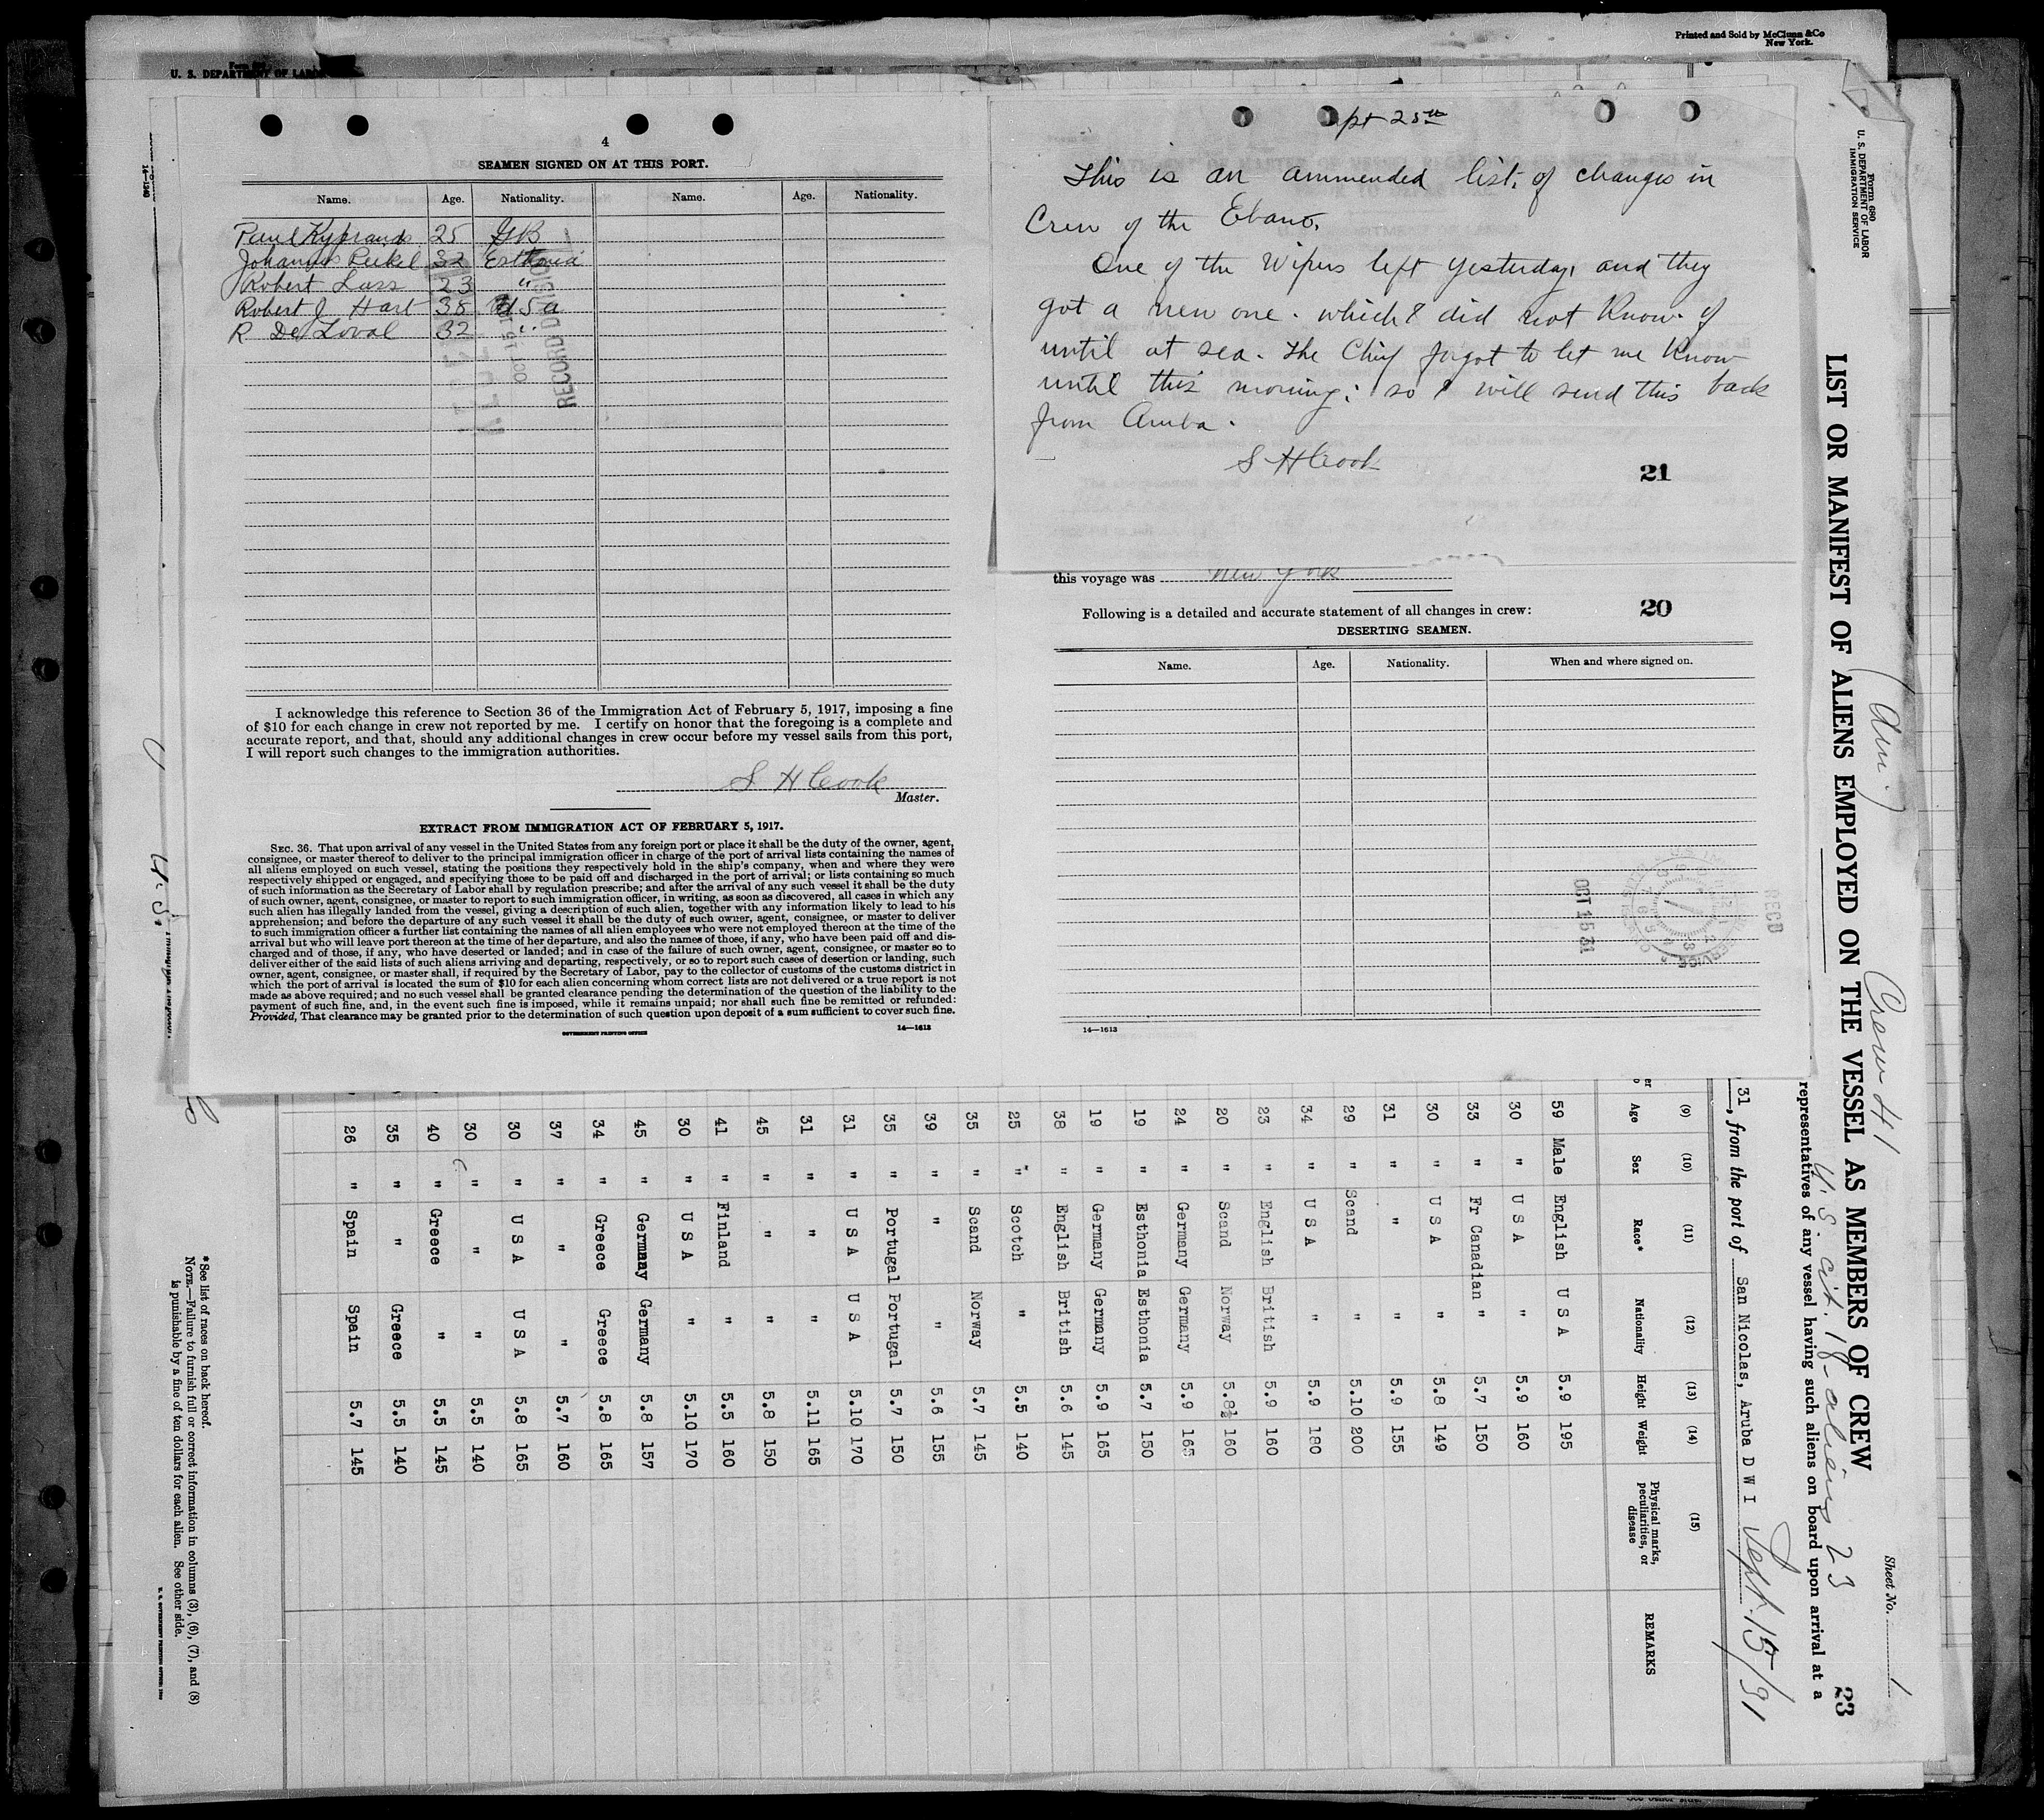 Printed and Sold by McClunn &Co
New York.
U. S. DEPARTMENT OF LABOR
14—1240
4
SEAMEN SIGNED ON AT THIS PORT.
Name. Age. Nationality. Name. Age. Nationality.
Paul 25 GB
Johannes 32 Esthonia
Robert 23 "
Robert J Hart 38 U S A
R De Loval 32 "
RECORD DIVISION
I acknowledge this reference to Section 36 of the Immigration Act of February 5, 1917, imposing a fine
of $10 for each change in crew not reported by me. I certify on honor that the foregoing is a complete and
accurate report, and that, should any additional changes in crew occur before my vessel sails from this port,
I will report such changes to the immigration authorities.
S H Cook
Master.
EXTRACT FROM IMMIGRATION ACT OF FEBRUARY 5, 1917.
SEC. 36. That upon arrival of any vessel in the United States from any foreign port or place it shall be the duty of the owner, agent,
consignee, or master thereof to deliver to the principal immigration officer in charge of the port of arrival lists containing the names of
all aliens employed on such vessel, stating the positions they respectively hold in the ship's company, when and where they were
respectively shipped or engaged, and specifying those to be paid off and discharged in the port of arrival; or lists containing so much
of such information as the Secretary of Labor shall by regulation prescribe; and after the arrival of any such vessel it shall be the duty
of such owner, agent, consignee, or master to report to such immigration officer, in writing, as soon as discovered, all cases in which any
such alien has illegally landed from the vessel, giving a description of such alien, together with any information likely to lead to his
apprehension; and before the departure of any such vessel it shall be the duty of such owner, agent, consignee, or master to deliver
to such immigration officer a further list containing the names of all alien employees who were not employed thereon at the time of the
arrival but who will leave port thereon at the time of her departure, and also the names of those, if any, who have been paid off and dis-
charged and of those, if any, who have deserted or landed; and in case of the failure of such owner, agent, consignee, or master so to
deliver either of the said lists of such aliens arriving and departing, respectively, or so to report such cases of desertion or landing, such
owner, agent, consignee, or master shall, if required by the Secretary of Labor, pay to the collector of customs of the customs district in
which the port of arrival is located the sum of $10 for each alien concerning whom correct lists are not delivered or a true report is not
made as above required; and no such vessel shall be granted clearance pending the determination of the question of the liability to the
payment of such fine, and, in the event such fine is imposed, while it remains unpaid; nor shall such fine be remitted or refunded:
Provided, That clearance may be granted prior to the determination of such question upon deposit of a sum sufficient to cover such fine.
GOVERNMENT PRINTING OFFICE 14—1613
Sept 25th
This is an ammended list, of changes in
Crew of the Ebano.
One of the Wipers left yesterday, and they
got a new one. which I did not Know of
until at sea. The Chief forgot to let me Know
until this morning; so I will send this back
from Aruba.
S H Cook
21
this voyage was New York
Following is a detailed and accurate statement of all changes in crew: 20
DESERTING SEAMEN.
Name. Age. Nationality. When and where signed on.
OCT 15 31
RECD
14—1613
Form 680
U. S. DEPARTMENT OF LABOR
IMMIGRATION SERVICE
Sheet No. 1
(Am.) Crew 41
U.S. cit. 18 - aliens 23
LIST OR MANIFEST OF ALIENS EMPLOYED ON THE VESSEL AS MEMBERS OF CREW 23
representatives of any vessel having such aliens on board upon arrival at a
31, from the port of San Nicolas, Aruba D W I Sept. 15/31
(9) (10) (11) (12) (13) (14) (15)
Age Sex Race* Nationality Height Weight Physical marks, peculiarities, or disease REMARKS
59 Male English U S A 5.9 195
30 " U S A " 5.9 160
33 " Fr Canadian " 5.7 150
30 " U S A " 5.8 149
31 " " " 5.9 155
29 " Scand " 5.10 200
34 " U S A " 5.9 180
23 " English British 5.9 160
20 " Scand Norway 5.8½ 160
24 " Germany Germany 5.9 165
19 " Esthonia Esthonia 5.7 150
19 " Germany Germany 5.9 165
38 " English British 5.6 145
25 " Scotch " 5.5 140
35 " Scand Norway 5.7 145
39 " " " 5.6 155
35 " Portugal Portugal 5.7 150
31 " U S A U S A 5.10 170
31 " " " 5.11 165
45 " " " 5.8 150
41 " Finland " 5.5 160
30 " U S A " 5.10 170
45 " Germany Germany 5.8 157
34 " Greece Greece 5.8 165
37 " " " 5.7 160
30 " U S A U S A 5.8 165
30 " " " 5.5 140
40 " Greece " 5.5 145
35 " " Greece 5.5 140
26 " Spain Spain 5.7 145
*See list of races on back hereof.
NOTE.—Failure to furnish full or correct information in columns (3), (6), (7), and (8)
is punishable by a fine of ten dollars for each alien. See other side.